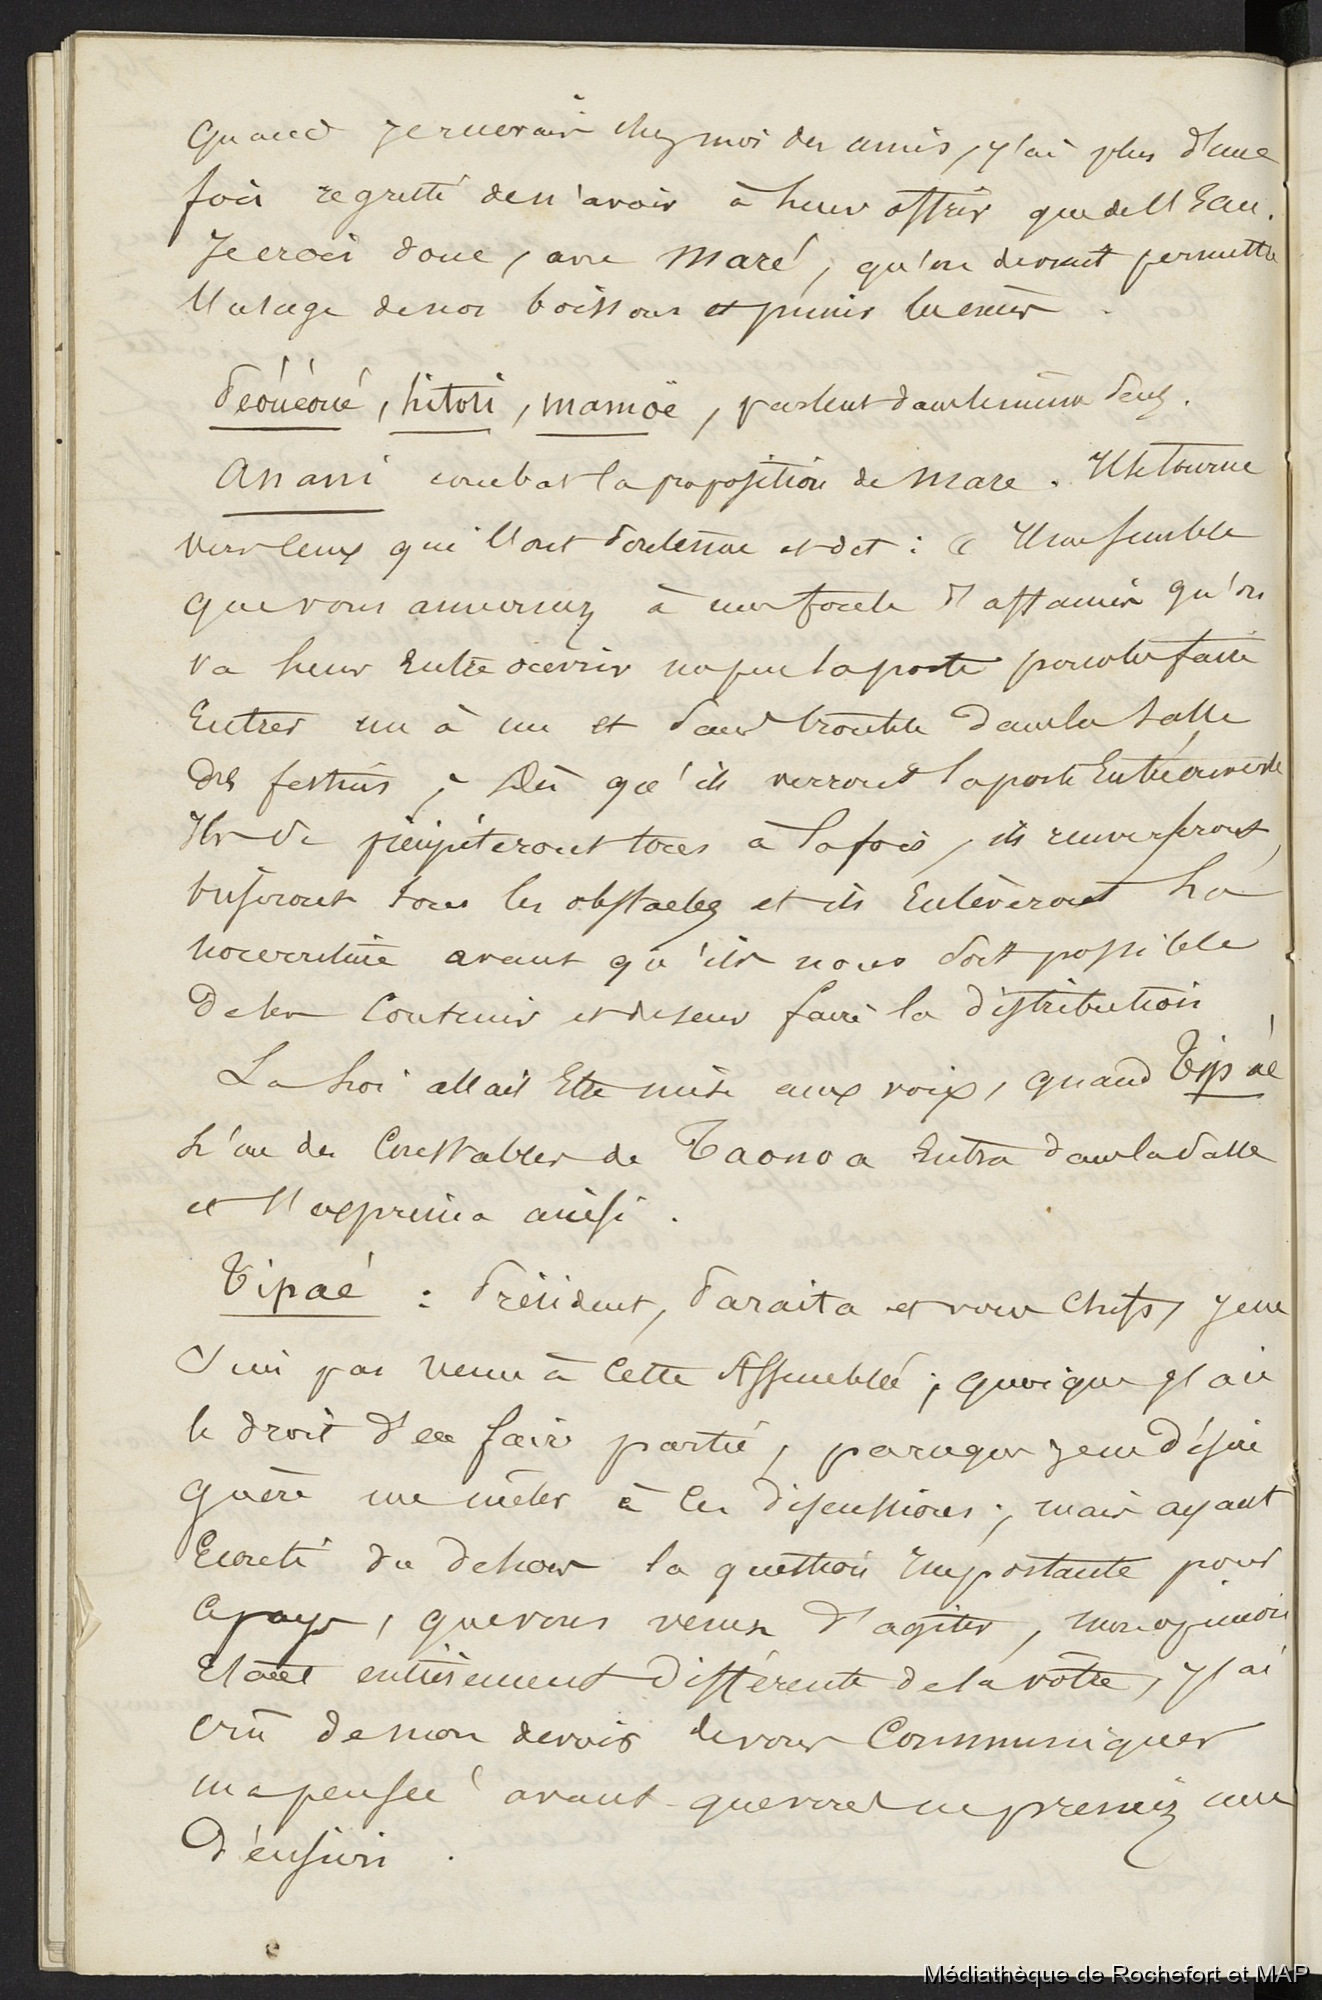 Quand je recevais chez moi des amis, j'ai plus d'une
fois regretté de n'avoir à leur offrir que de l'Eau.
Je crois donc, avec Maré, qu'on devrait permettre
l'usage de nos boissons et punir l'excès.
Péouéoué, hitoti, mamoë, parlent dans le même sens.
Anani combat la proposition de Mare. Il se tourne
vers ceux qui l'ont soutenue et dit : « Il me semble
que vous annoncez à une foule d'affamés qu'on
va leur Entre ouvrir un peu la porte pour les faire
Entrer un à un et sans trouble dans la salle
des festins ; Dès qu'ils verront la porte Entr'ouverte
Ils se précipiteront tous à la fois, ils renverseront,
briseront tous les obstacles et ils Enlèveront la
nourriture avant qu'il nous soit possible
de les Contenir et de leur faire la distribution
La Loi allait Etre mise aux voix, quand Tipaé
l'un des Constables de Taonoa Entra dans la salle
et s'exprima ainsi.
Tipaé : Président, Paraita et vous Chefs, je ne
suis pas venu à Cette Assemblée ; quoique j'aie
le droit d'en faire partie, parceque je ne désire
guère me mêler à Ces discussions ; mais ayant
Ecouté du dehors la question Importante pour
Ce pays, que vous venez d'agiter, mon opinion
Etant entièrement différente de la vôtre, j'ai
crû de mon devoir de vous Communiquer
ma pensée avant que vous ne preniez une
décision.
Médiathèque de Rochefort et MAP